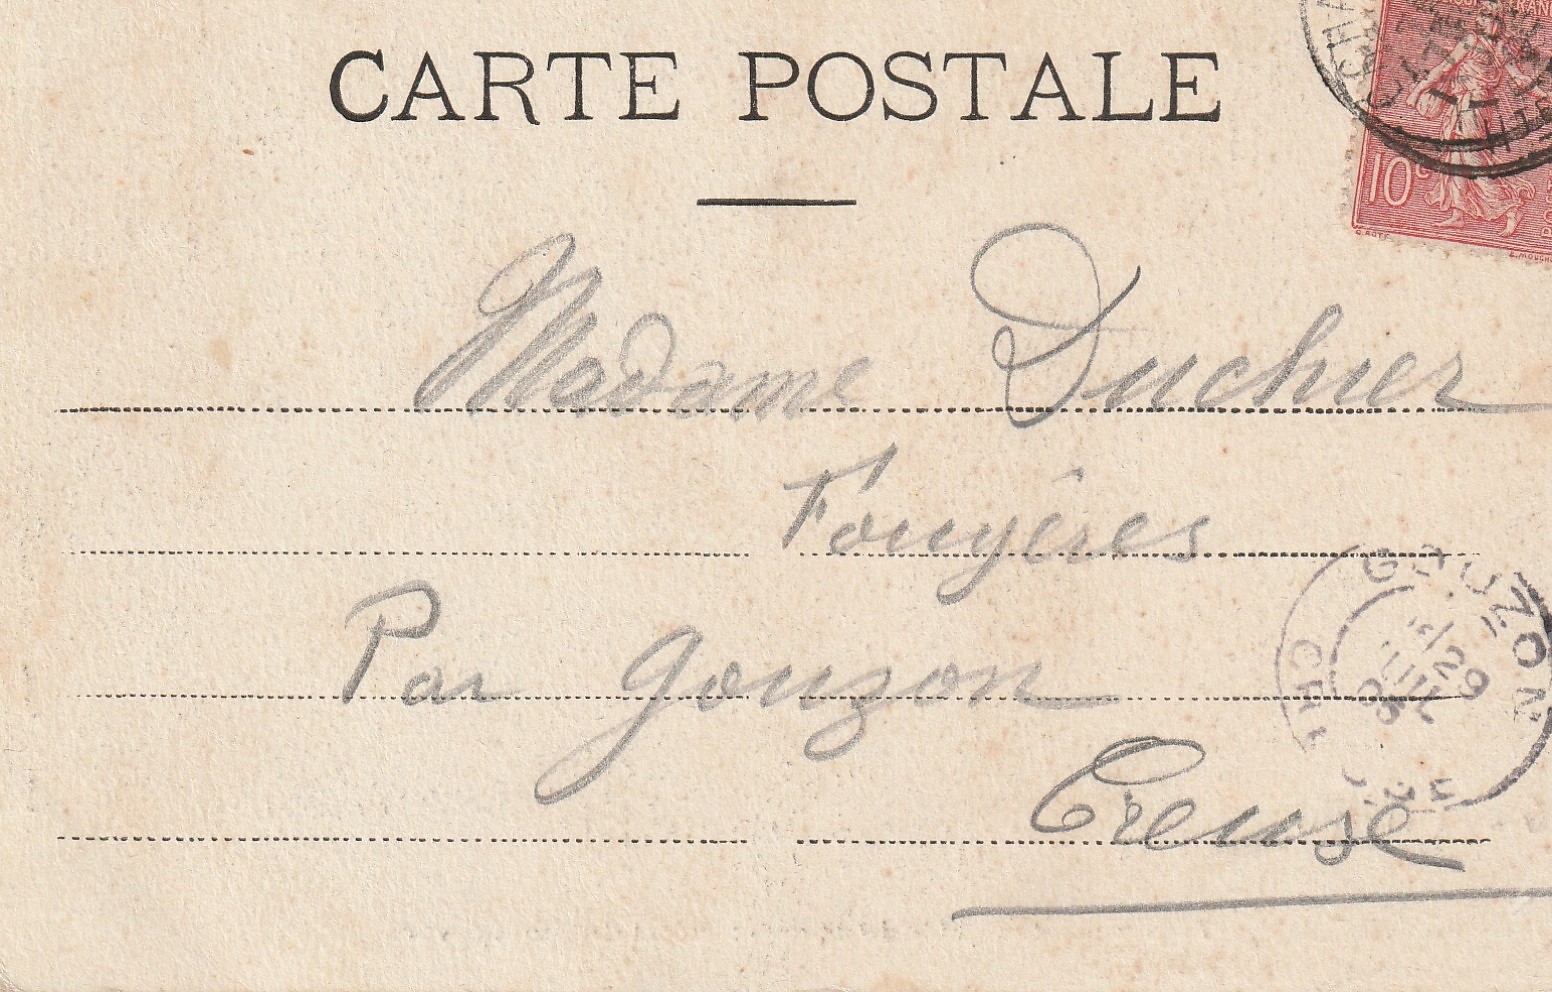 CARTE POSTALE
10c
Madame Duchier
Fougères
Par Gouzon
Creuse
GOUZON
29
JUIL